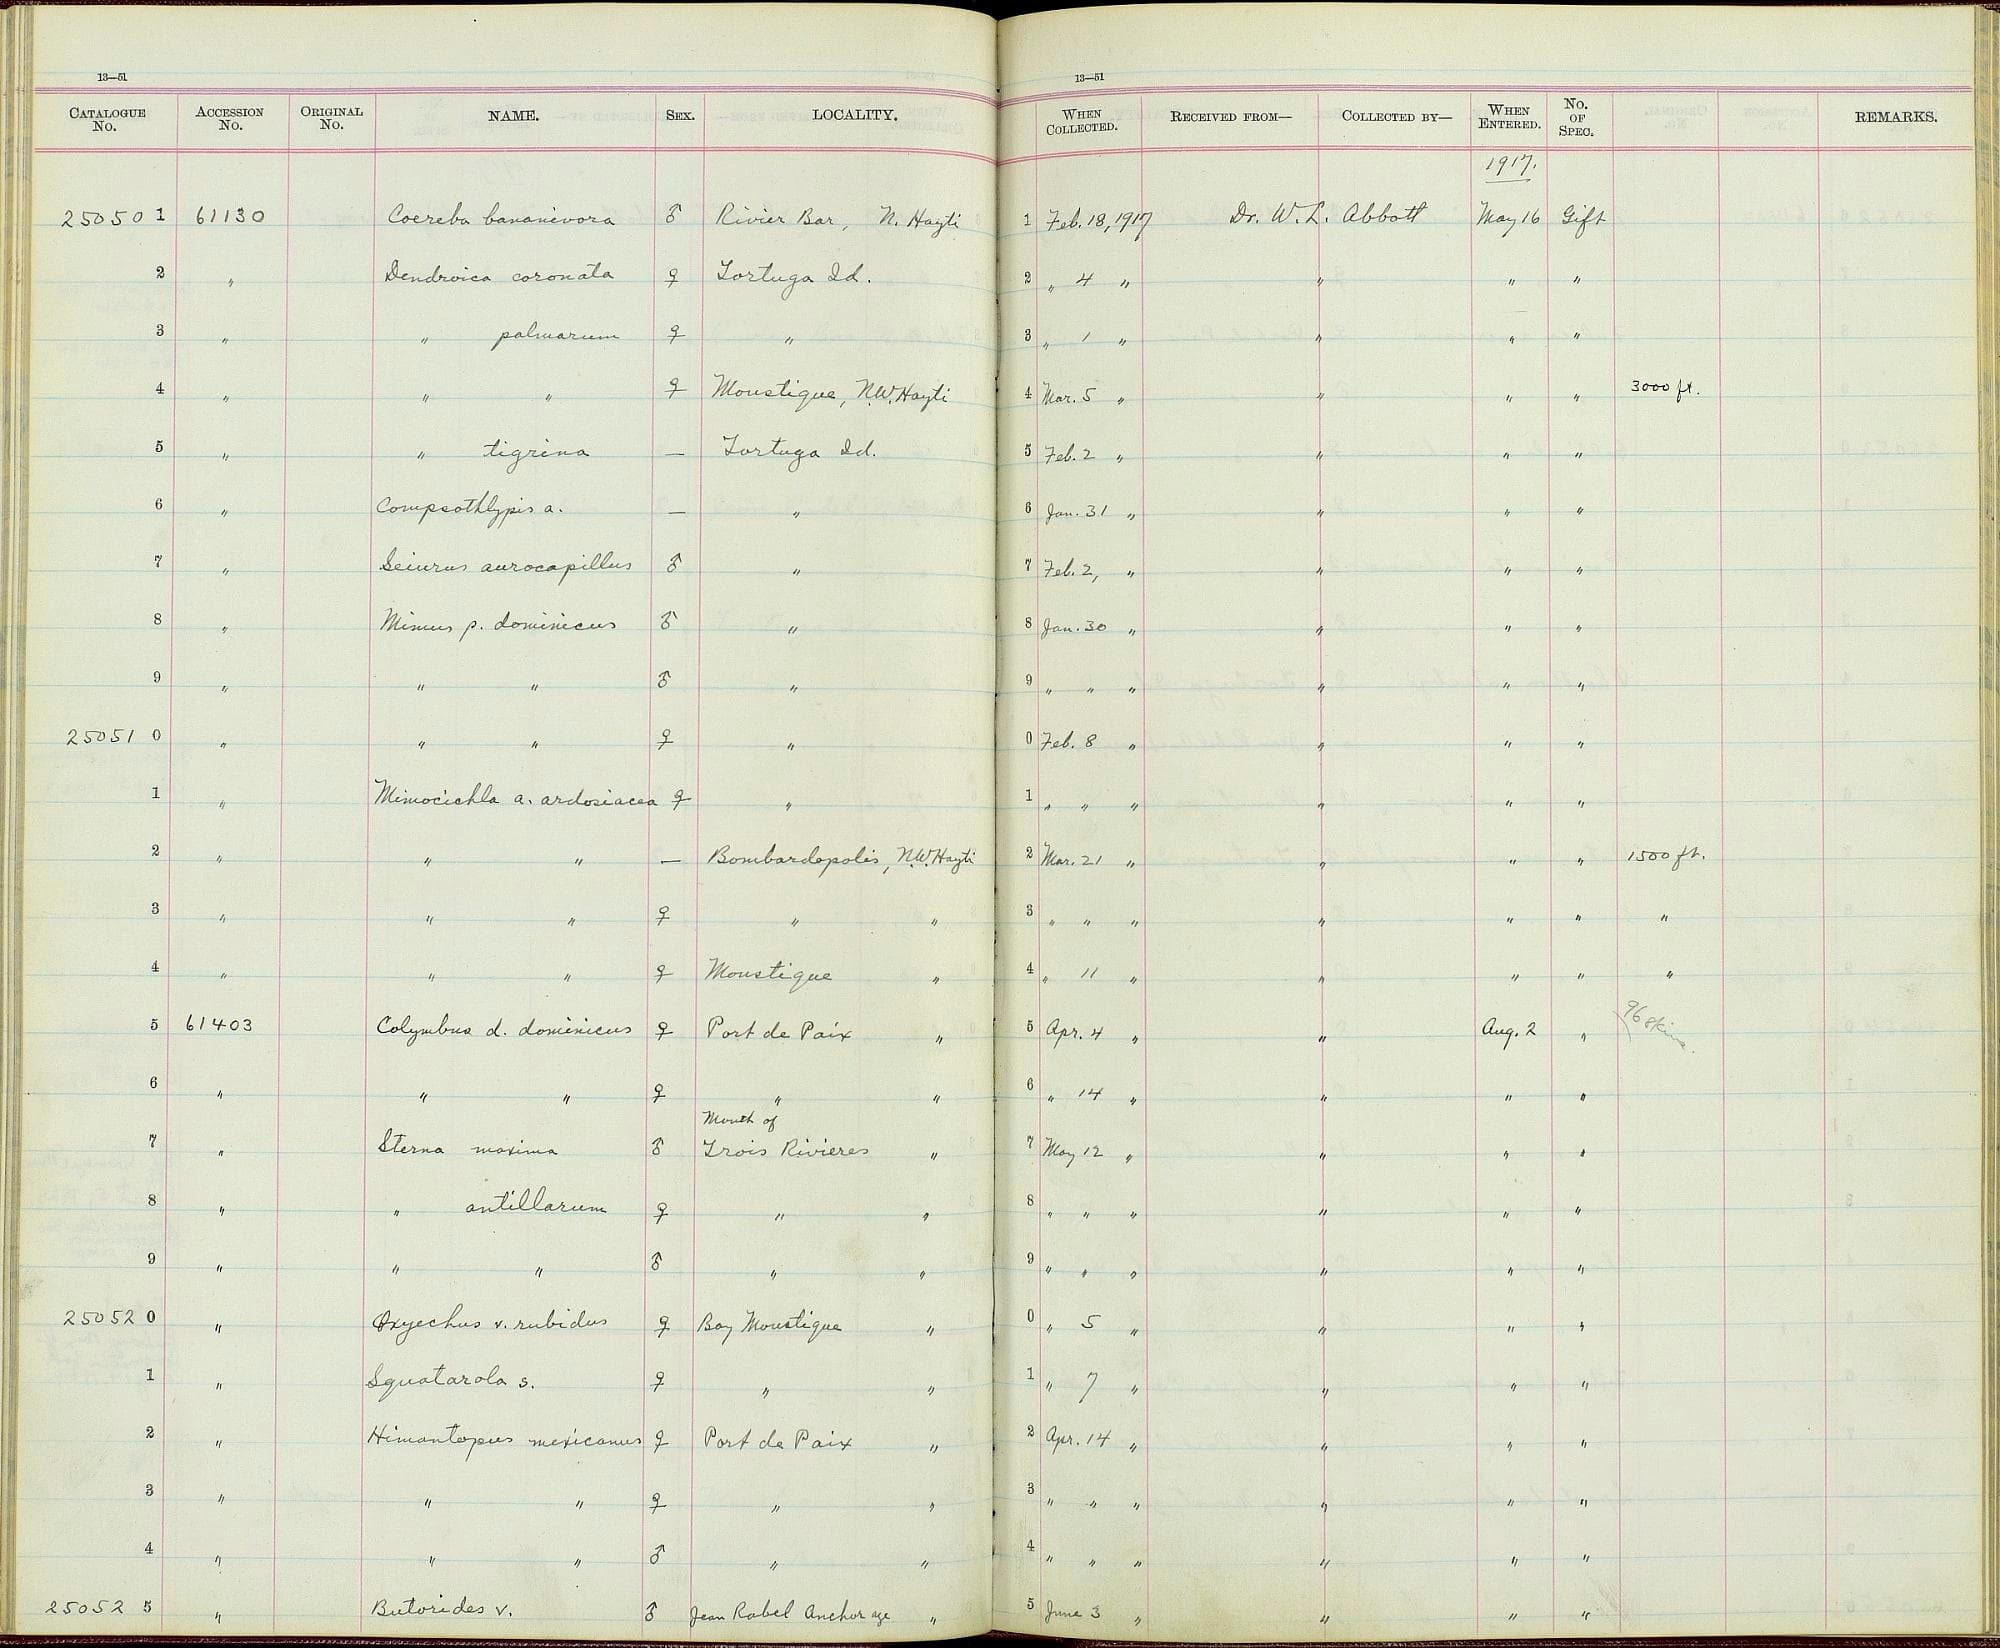 13—51
CATALOGUE No. ACCESSION No. ORIGINAL No. NAME. SEX. LOCALITY.
13—51
WHEN COLLECTED. RECEIVED FROM— COLLECTED BY— WHEN ENTERED. No. OF SPEC. REMARKS.
1917.
250501 61130 Coereba bananivora ♂ Rivier Bar, N. Hayti 1 Feb. 18, 1917 Dr. W. L. Abbott May 16 Gift
2 " Dendroica coronata ♀ Tortuga Id. 2 " 4 " " " "
3 " " palmarum ♀ " 3 " 1 " " " "
4 " " " ♀ Moustique, N.W. Hayti 4 Mar. 5 " " " " 3000 ft.
5 " " tigrina — Tortuga Id. 5 Feb. 2 " " " "
6 " Compsothlypis a. — " 6 Jan. 31 " " " "
7 " Seiurus aurocapillus ♂ " 7 Feb. 2, " " " "
8 " Mimus p. dominicus ♂ " 8 Jan. 30 " " " "
9 " " " ♂ " 9 " " " " " "
25051 0 " " " ♀ " 0 Feb. 8 " " " "
1 " Mimocichla a. ardosiacea ♀ " 1 " " " " " "
2 " " " — Bombardopolis, N.W. Hayti 2 Mar. 21 " " " " 1500 ft.
3 " " " ♀ " " 3 " " " " " " "
4 " " " ♀ Moustique " 4 " 11 " " " " "
5 61403 Colymbus d. dominicus ♀ Port de Paix " 5 Apr. 4 " " Aug. 2 " 96 skins.
6 " " " ♀ " " 6 " 14 " " " "
Mouth of
7 " Sterna maxima ♂ Trois Rivieres " 7 May 12 " " " "
8 " " antillarum ♀ " " 8 " " " " " "
9 " " " ♂ " " 9 " " " " " "
25052 0 " Oxyechus v. rubidus ♀ Bay Moustique " 0 " 5 " " " "
1 " Squatarola s. ♀ " " 1 " 7 " " " "
2 " Himantopus mexicanus ♀ Port de Paix " 2 Apr. 14 " " " "
3 " " " ♀ " " 3 " " " " " "
4 " " " ♂ " " 4 " " " " " "
25052 5 " Butorides v. ♂ Jean Rabel Anchorage " 5 June 3 " " " "